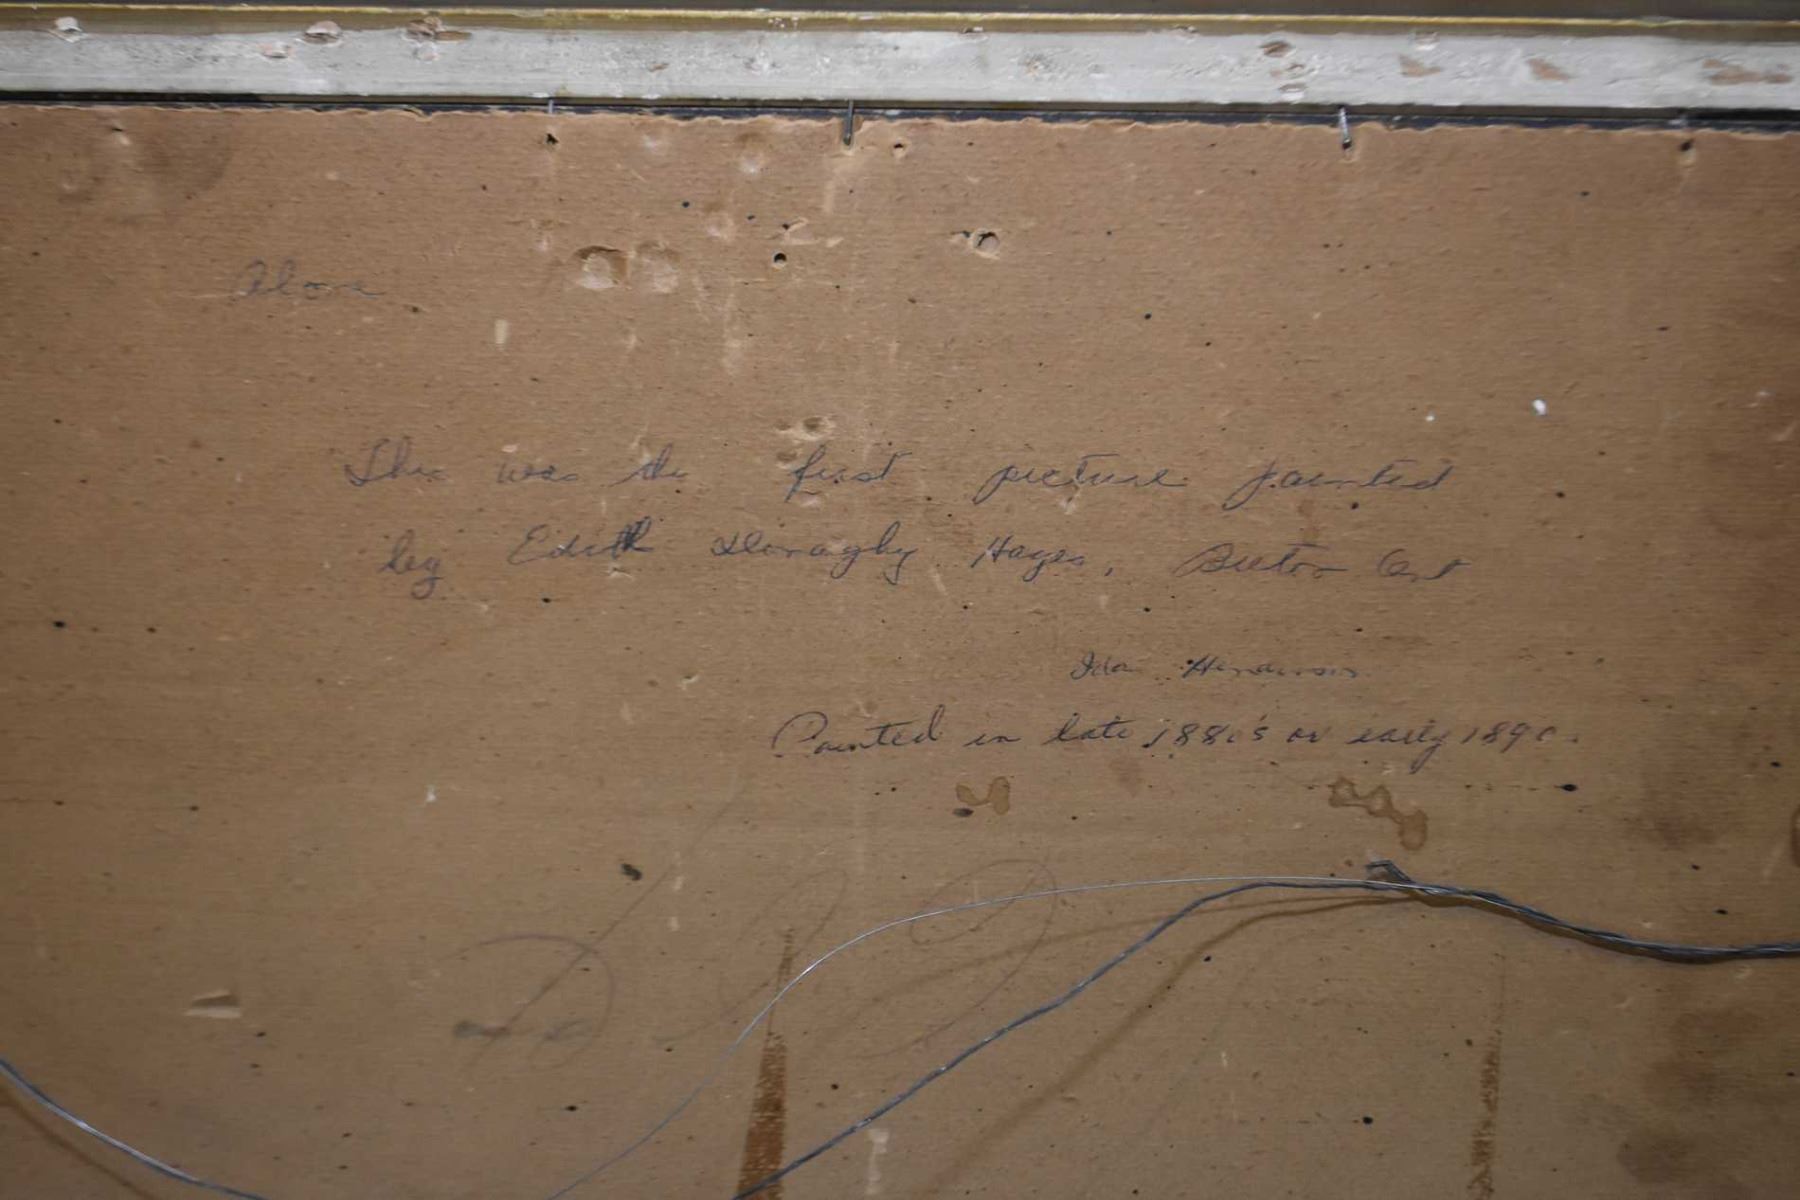 Alone
This was the first picture painted
by Edith Hayes, Ont
Ida Henderson
Painted in late 1880's or early 1890.